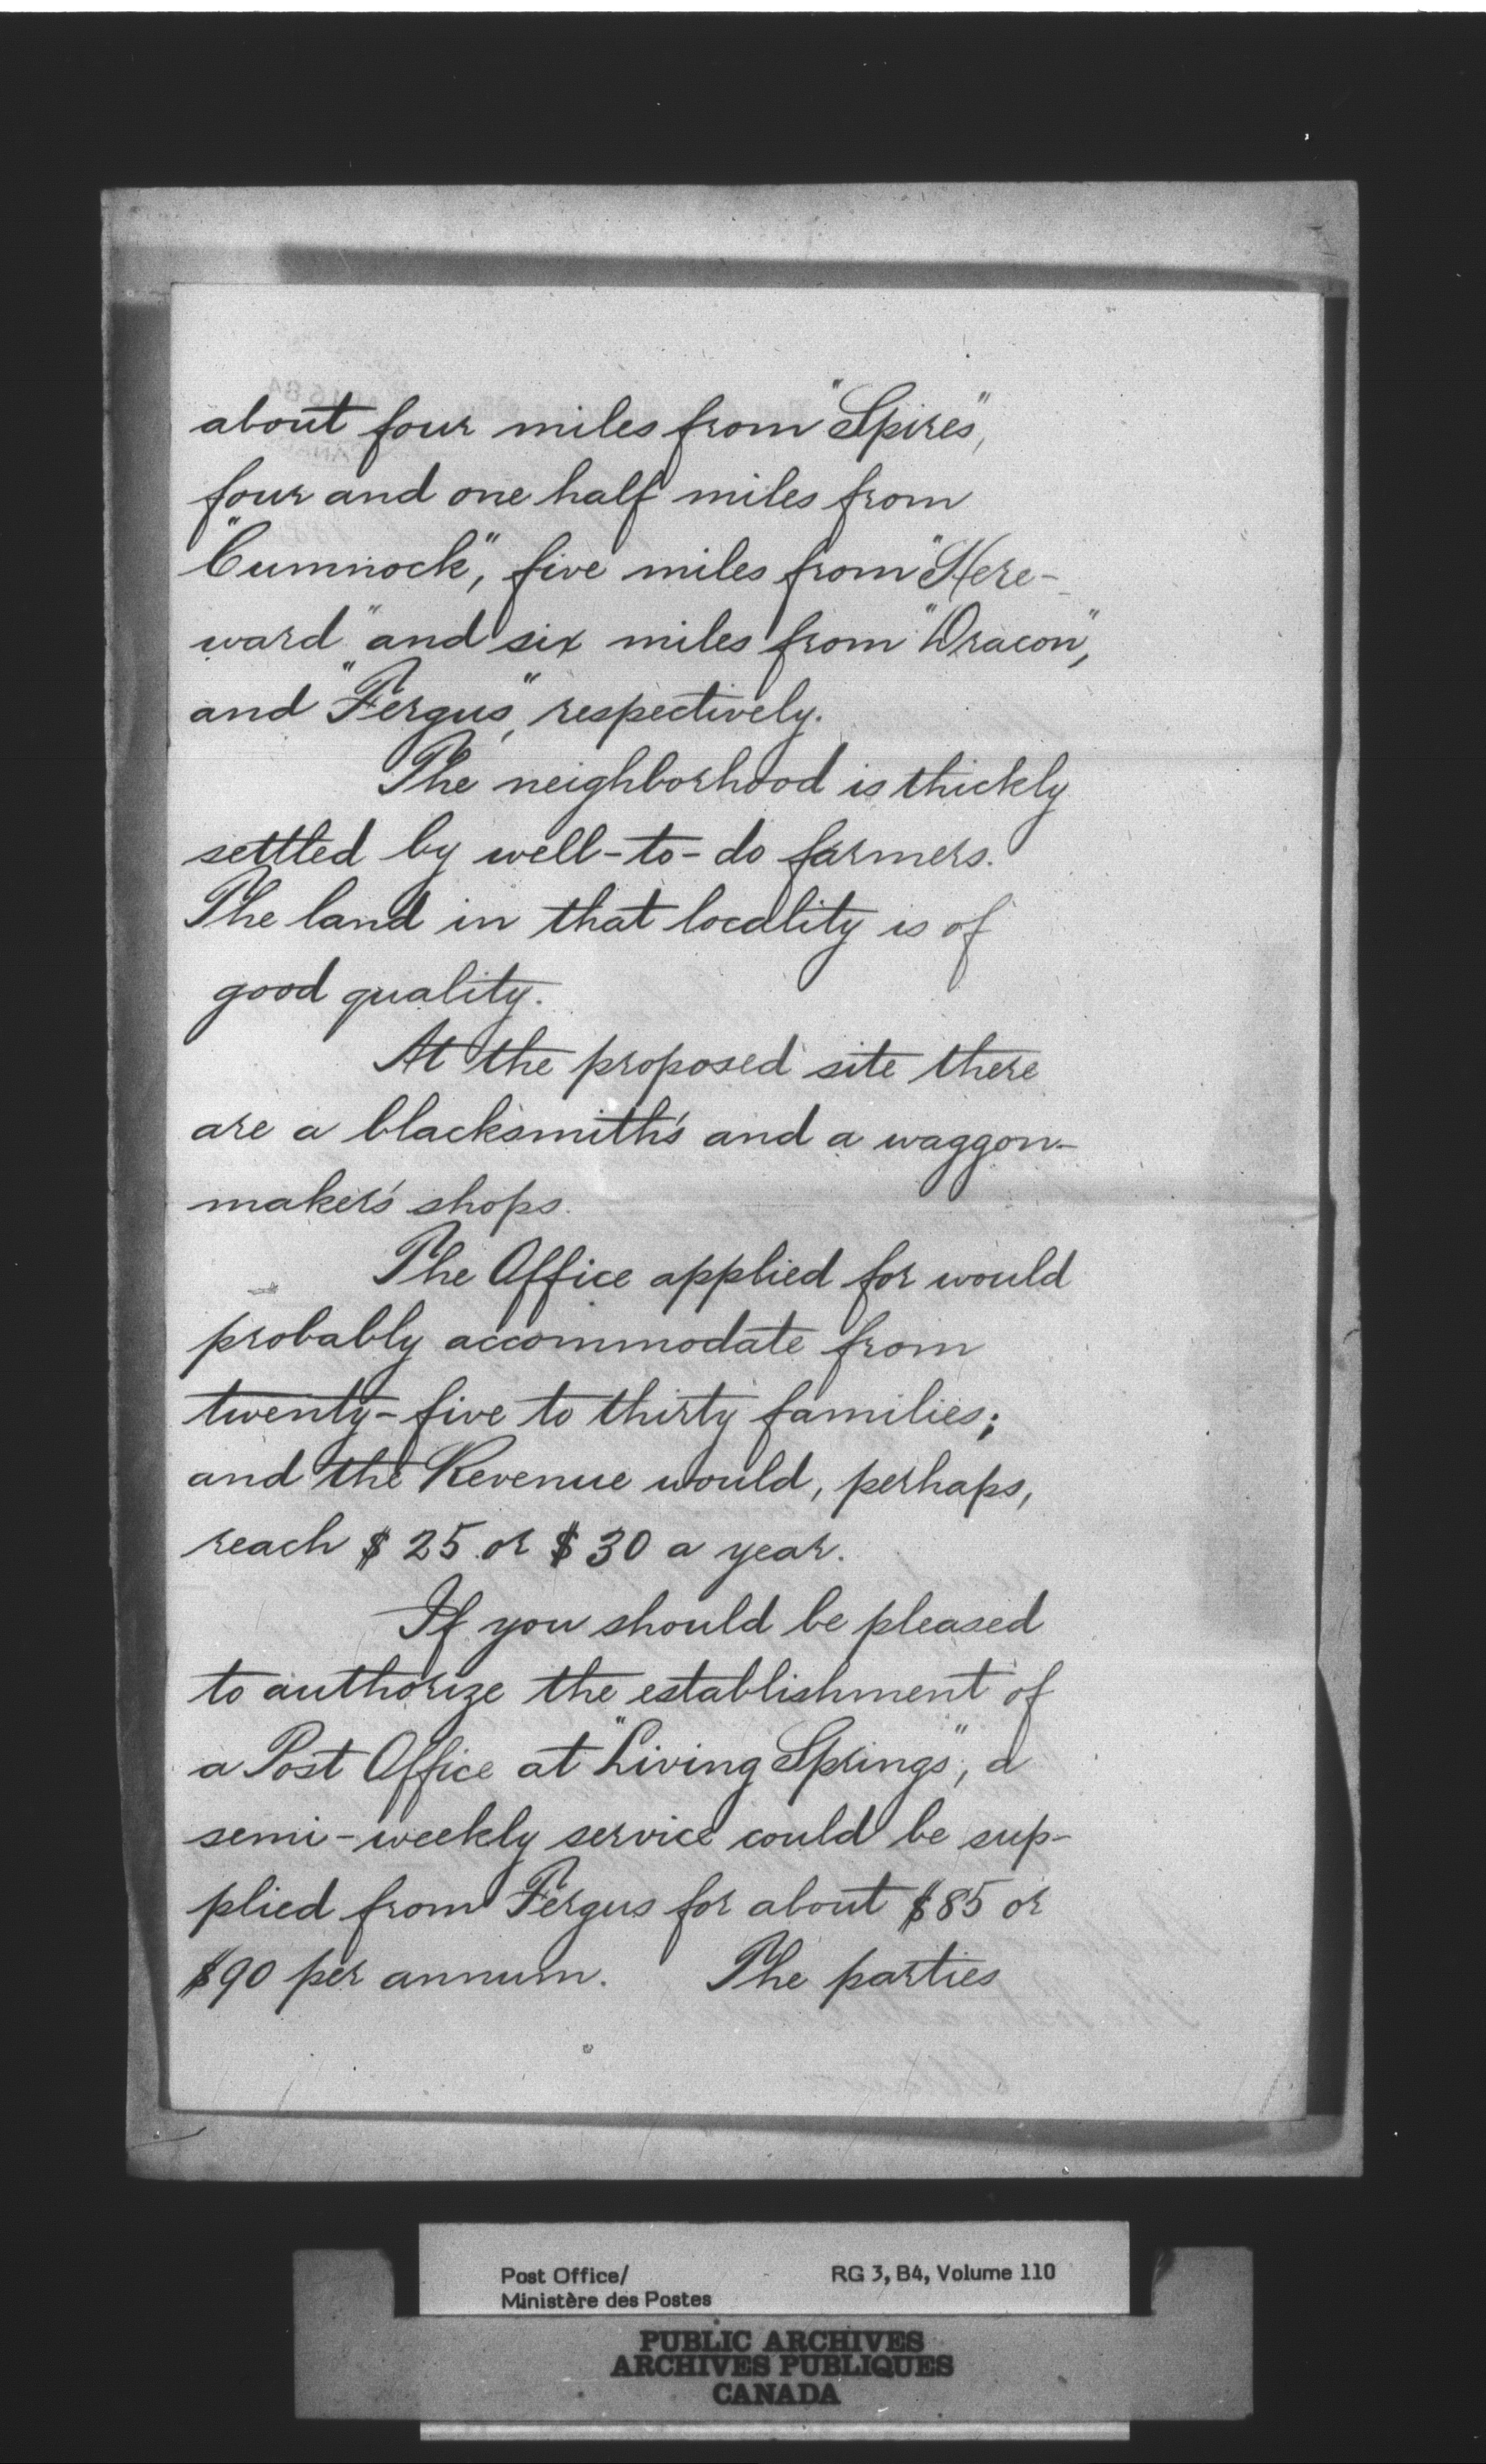 about four miles from "Spires",
four and one half miles from
"Cumnock", five miles from "Here-
ward" and six miles from "Oracon",
and "Fergus", respectively.
The neighborhood is thickly
settled by well-to-do farmers.
The land in that locality is of
good quality.
At the proposed site there
are a blacksmith's and a waggon-
maker's shops.
The Office applied for would
probably accommodate from
twenty-five to thirty families;
and the Revenue would, perhaps,
reach $25 or $30 a year.
If you should be pleased
to authorize the establishment of
a Post Office at "Living Springs", a
semi-weekly service could be sup-
plied from Fergus for about $85 or
$90 per annum. The parties
Post Office/
Ministère des Postes
RG 3, B4, Volume 110
PUBLIC ARCHIVES
ARCHIVES PUBLIQUES
CANADA